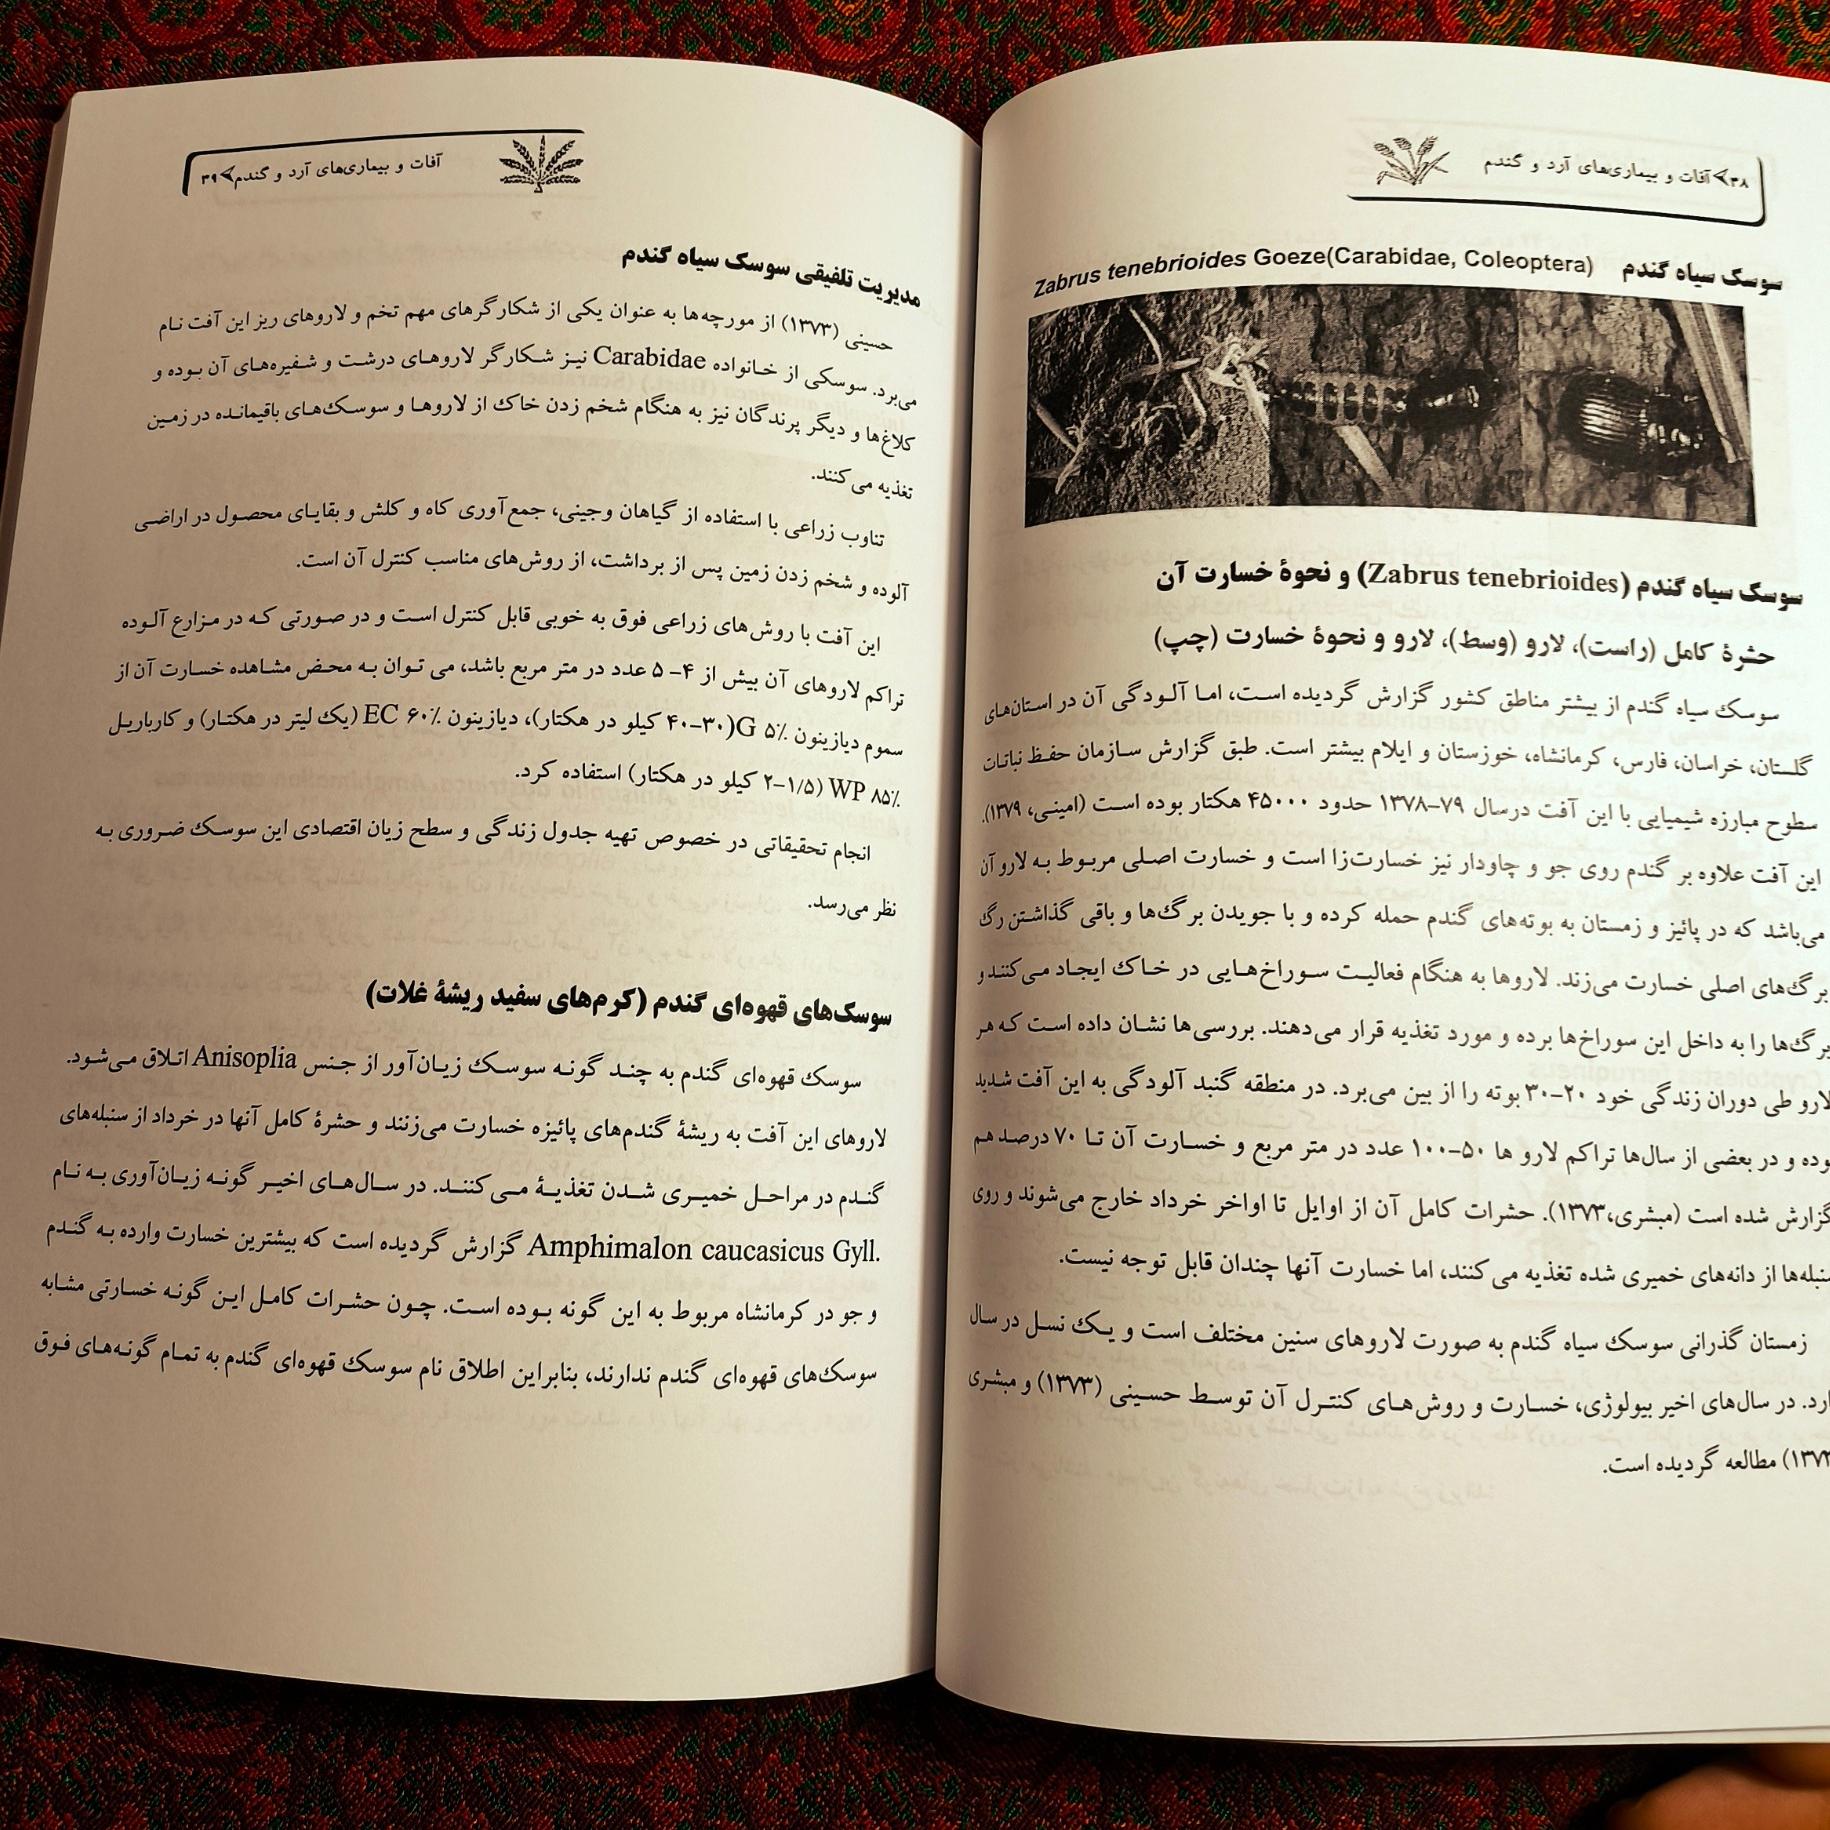 ۳۸ آفات و بیماری‌های آرد و گندم
سوسک سیاه گندم Zabrus tenebrioides Goeze(Carabidae, Coleoptera)
سوسک سیاه گندم (Zabrus tenebrioides) و نحوۀ خسارت آن
حشرۀ کامل (راست)، لارو (وسط)، لارو و نحوۀ خسارت (چپ)
سوسک سیاه گندم از بیشتر مناطق کشور گزارش گردیده است، اما آلودگی آن در استان‌های
گلستان، خراسان، فارس، کرمانشاه، خوزستان و ایلام بیشتر است. طبق گزارش سازمان حفظ نباتات
سطوح مبارزه شیمیایی با این آفت درسال ۷۹-۱۳۷۸ حدود ۴۵۰۰۰ هکتار بوده است (امینی، ۱۳۷۹).
این آفت علاوه بر گندم روی جو و چاودار نیز خسارت‌زا است و خسارت اصلی مربوط به لارو آن
می‌باشد که در پائیز و زمستان به بوته‌های گندم حمله کرده و با جویدن برگ‌ها و باقی گذاشتن رگ
برگ‌های اصلی خسارت می‌زند. لاروها به هنگام فعالیت سوراخ‌هایی در خاک ایجاد می‌کنند و
برگ‌ها را به داخل این سوراخ‌ها برده و مورد تغذیه قرار می‌دهند. بررسی‌ها نشان داده است که هر
لارو طی دوران زندگی خود ۲۰-۳۰ بوته را از بین می‌برد. در منطقه گنبد آلودگی به این آفت شدید
وده و در بعضی از سال‌ها تراکم لارو ها ۵۰-۱۰۰ عدد در متر مربع و خسارت آن تا ۷۰ درصد هم
گزارش شده است (مبشری،۱۳۷۳). حشرات کامل آن از اوایل تا اواخر خرداد خارج می‌شوند و روی
سنبله‌ها از دانه‌های خمیری شده تغذیه می‌کنند، اما خسارت آنها چندان قابل توجه نیست.
زمستان گذرانی سوسک سیاه گندم به صورت لاروهای سنین مختلف است و یک نسل در سال
ارد. در سال‌های اخیر بیولوژی، خسارت و روش‌های کنترل آن توسط حسینی (۱۳۷۳) و مبشری
مطالعه گردیده است.
آفات و بیماری‌های آرد و گندم ۳۹
مدیریت تلفیقی سوسک سیاه گندم
حسینی (۱۳۷۳) از مورچه‌ها به عنوان یکی از شکارگرهای مهم تخم و لاروهای ریز این آفت نام
می‌برد. سوسکی از خانواده Carabidae نیز شکارگر لاروهای درشت و شفیره‌های آن بوده و
کلاغ‌ها و دیگر پرندگان نیز به هنگام شخم زدن خاک از لاروها و سوسک‌های باقیمانده در زمین
تغذیه می‌کنند.
تناوب زراعی با استفاده از گیاهان وجینی، جمع‌آوری کاه و کلش و بقایای محصول در اراضی
آلوده و شخم زدن زمین پس از برداشت، از روش‌های مناسب کنترل آن است.
این آفت با روش‌های زراعی فوق به خوبی قابل کنترل است و در صورتی که در مزارع آلوده
تراکم لاروهای آن بیش از ۴- ۵ عدد در متر مربع باشد، می توان به محض مشاهده خسارت آن از
سموم دیازینون ۵٪ G(۳۰-۴۰ کیلو در هکتار)، دیازینون ۶۰٪ EC (یک لیتر در هکتار) و کارباریل
۸۵٪ WP (۱/۵-۲ کیلو در هکتار) استفاده کرد.
انجام تحقیقاتی در خصوص تهیه جدول زندگی و سطح زیان اقتصادی این سوسک ضروری به
نظر می‌رسد.
سوسک‌های قهوه‌ای گندم (کرم‌های سفید ریشۀ غلات)
سوسک قهوه‌ای گندم به چند گونه سوسک زیان‌آور از جنس Anisoplia اتلاق می‌شود.
لاروهای این آفت به ریشۀ گندم‌های پائیزه خسارت می‌زنند و حشرۀ کامل آنها در خرداد از سنبله‌های
گندم در مراحل خمیری شدن تغذیۀ می‌کنند. در سال‌های اخیر گونه زیان‌آوری به نام
Amphimalon caucasicus Gyll. گزارش گردیده است که بیشترین خسارت وارده به گندم
و جو در کرمانشاه مربوط به این گونه بوده است. چون حشرات کامل این گونه خسارتی مشابه
سوسک‌های قهوه‌ای گندم ندارند، بنابراین اطلاق نام سوسک قهوه‌ای گندم به تمام گونه‌های فوق